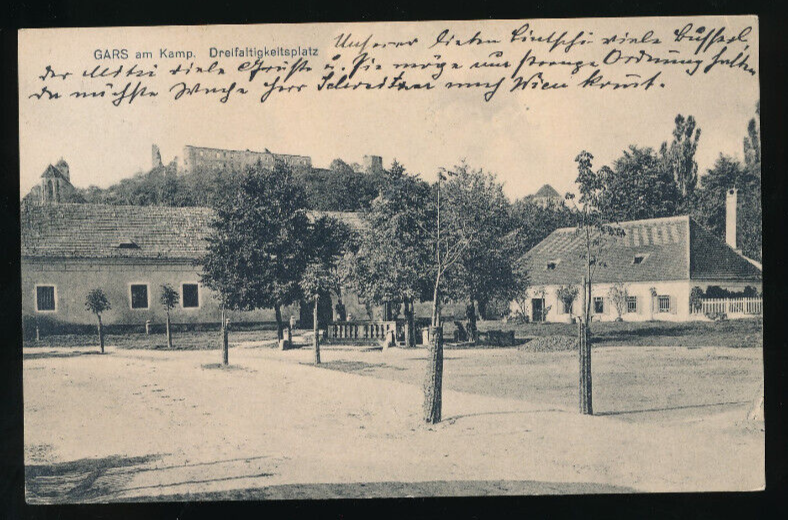 GARS am Kamp. Dreifaltigkeitsplatz
Unserer lieben Bintschi viele Busserl,
der Mitzi viele Grüße u. Sie möge nur strenge Ordnung halten
da nächste Woche Herr Schweitzer nach Wien kommt.